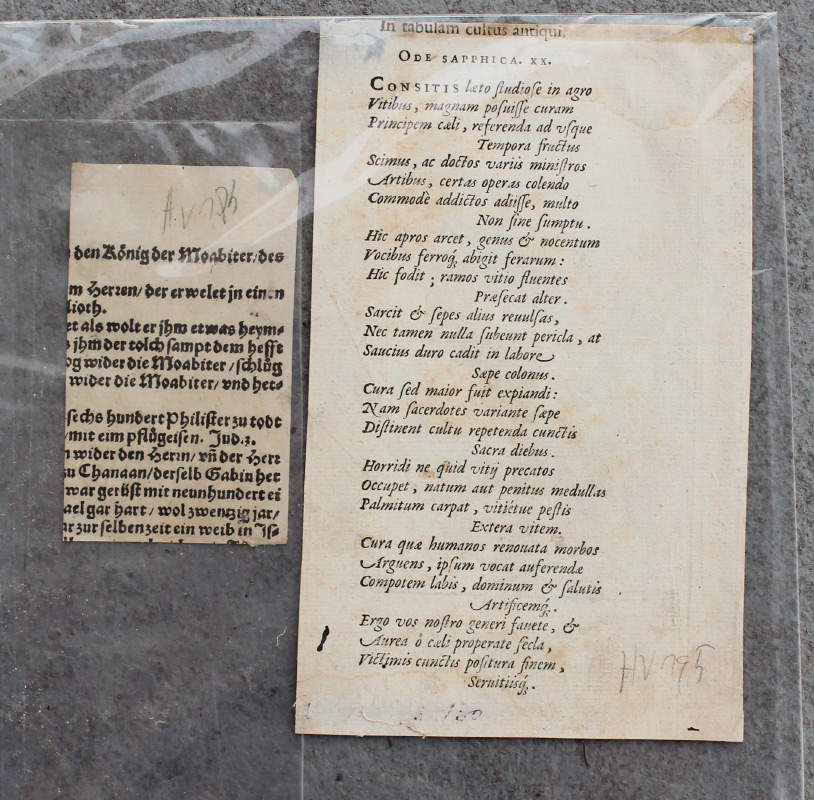 A. V 785
den König der Moabiter/des
m Herren/der erwelet jn einen
lioth.
et als wolt er jhm etwas heym⸗
s jhm der tolch sampt dem hefft
og wider die Moabiter/schlůg
wider die Moabiter/vnd het⸗
sechs hundert Philister zu todt
/mit eim pflůgeisen. Jud.3.
n wider den Herrn/vñ der Herr
zu Chanaan/derselb Gabin het
war gerüst mit neunhundert ei
ael gar hart/wol zwentzig jar/
ar zur selben zeit ein weib in Js⸗
In tabulam cultus antiqui.
ODE SAPPHICA. XX.
CONSITIS læto ſtudioſe in agro
Vitibus, magnam poſuiſſe curam
Principem cæli, referenda ad vſque
Tempora fructus
Scimus, ac doctos variis miniſtros
Artibus, certas operas colendo
Commodè addictos adiiſſe, multo
Non ſine ſumptu.
Hic apros arcet, genus & nocentum
Vocibus ferroq́; abigit ferarum:
Hic fodit; ramos vitio fluentes
Præſecat alter.
Sarcit & ſepes alius reuulſas,
Nec tamen nulla ſubeunt pericla, at
Saucius duro cadit in labore
Sæpe colonus.
Cura ſed maior fuit expiandi:
Nam ſacerdotes variante ſæpe
Diſtinent cultu repetenda cunctis
Sacra diebus.
Horridi ne quid vitij precatos
Occupet, natum aut penitus medullas
Palmitum carpat, vitiétue peſtis
Extera vitem.
Cura quæ humanos renouata morbos
Arguens, ipſum vocat auferendæ
Compotem labis, dominum & ſalutis
Artificemq́;.
Ergo vos noſtro generi fauete, &
Aurea ô cæli properate ſecla,
Victimis cunctis poſitura finem,
Seruitiisq́;.
HV 795